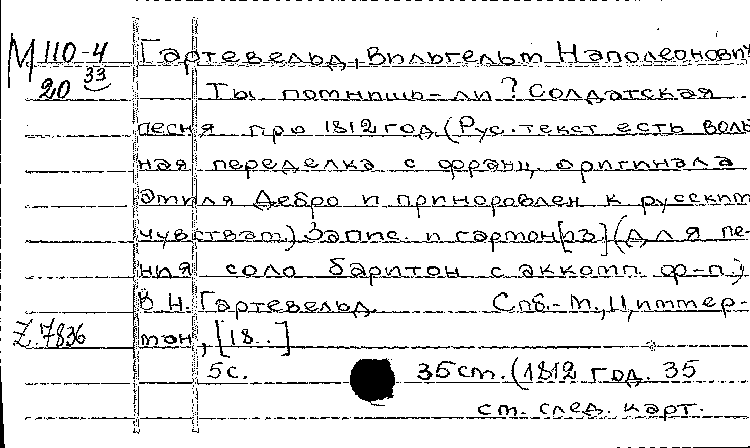 М 110-4 Гартевельд, Вильгельм Наполеонович
20 33 Ты помнишь-ли? Солдатская
песня про 1812 год. (Рус. текст есть воль
ная переделка с франц. оригинала
Эмиля Дебро и приноровлен к русским
чувствам) Запис. и гармон[из] (для пе-
ния соло баритон с аккомп. ф-п.)
В.Н. Гартевельд. Спб.-М., Циммер-
Z.7836 ман, [18..]
5с. 35см. (1812 год. 35
см. след. карт.